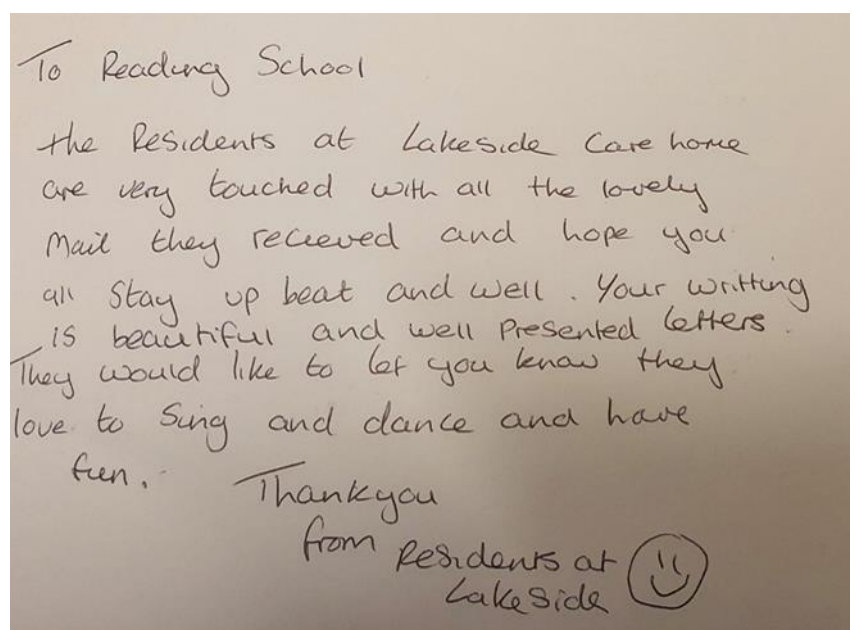 To Reading School
the Residents at Lakeside Care home
are very touched with all the lovely
Mail they recieved and hope you
all Stay up beat and well. Your writting
is beautiful and well Presented letters.
They would like to let you know they
love to Sing and dance and have
fun.
Thankyou
from Residents at
Lakeside